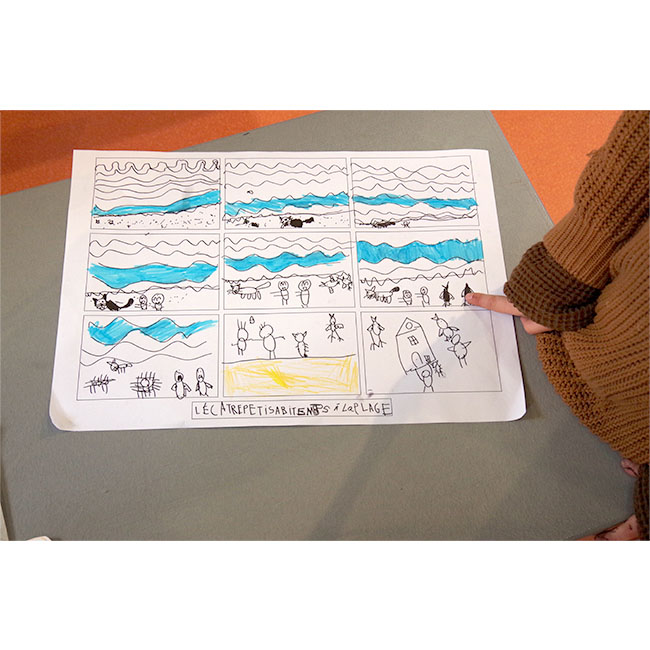 LÉCATREPETISABITENTS à LAPLAGE